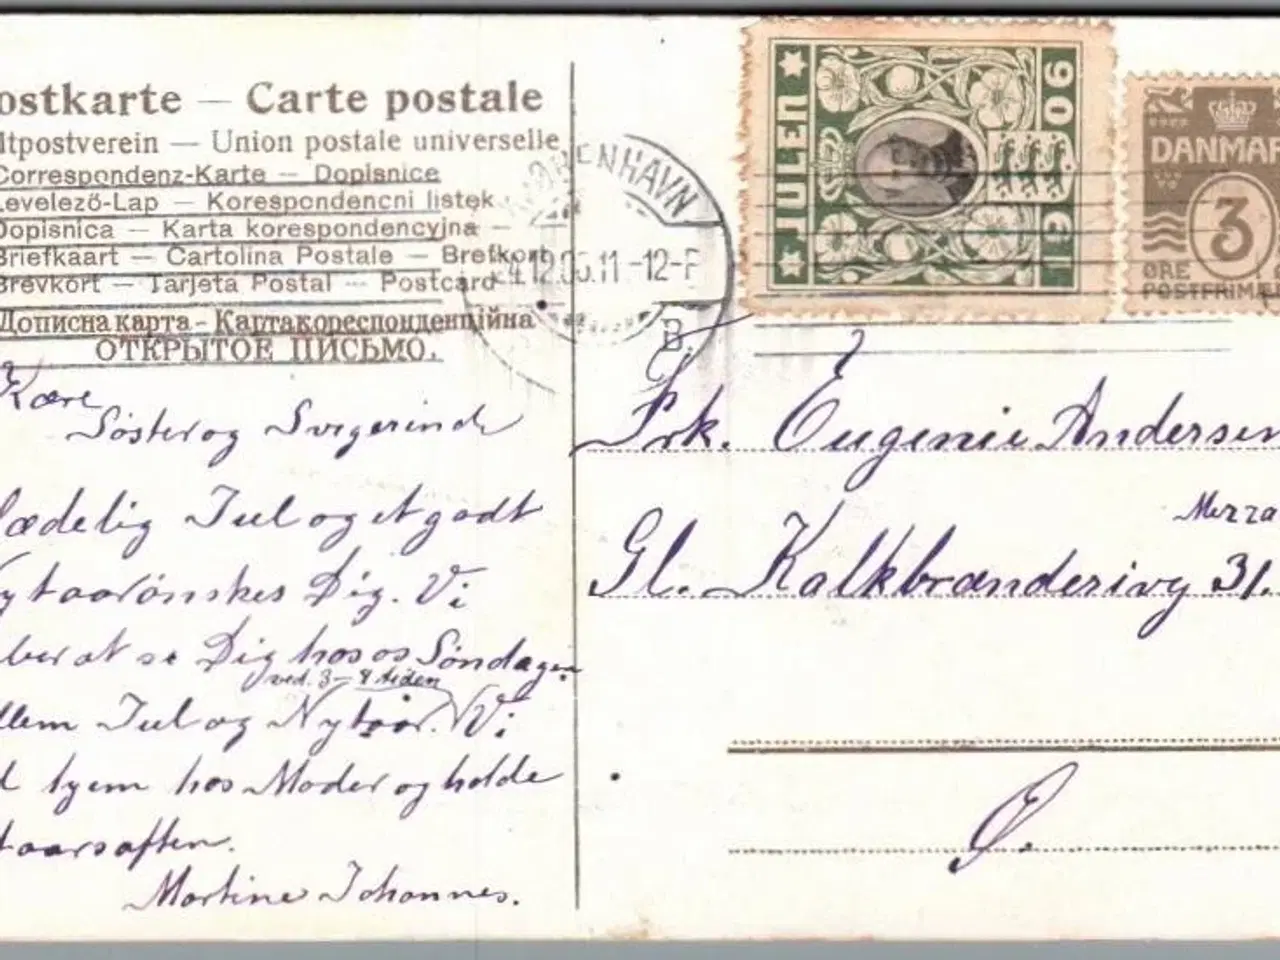 ostkarte — Carte postale
ltpostverein — Union postale universelle
Correspondenz-Karte — Dopisnice
Levelező-Lap — Korespondencni listek
Dopisnica — Karta korespondencyjna —
Briefkaart — Cartolina Postale — Brefkort
Brevkort — Tarjeta Postal — Postcard
Дописна карта - Картакореспонденційна
ОТКРЫТОЕ ПИСЬМО.
KØBENHAVN
4.12.06.11-12-F
B.
JULEN 1906
DANMAR
3
ØRE
POSTFRIMÆ
Kære
Søster og Svigerinde
lædelig Jul og et godt
ytaar ønskes Dig. Vi
ber at se Dig hos os Søndagen
ved. 3 — 4 tiden
llem Jul og Nytaar. Vi
d hjem hos Moder og holde
taarsaften.
Martine Johannes.
Frk. Eugenie Andersen
Mezza
Gl. Kalkbrænderivej 31.
Ø.